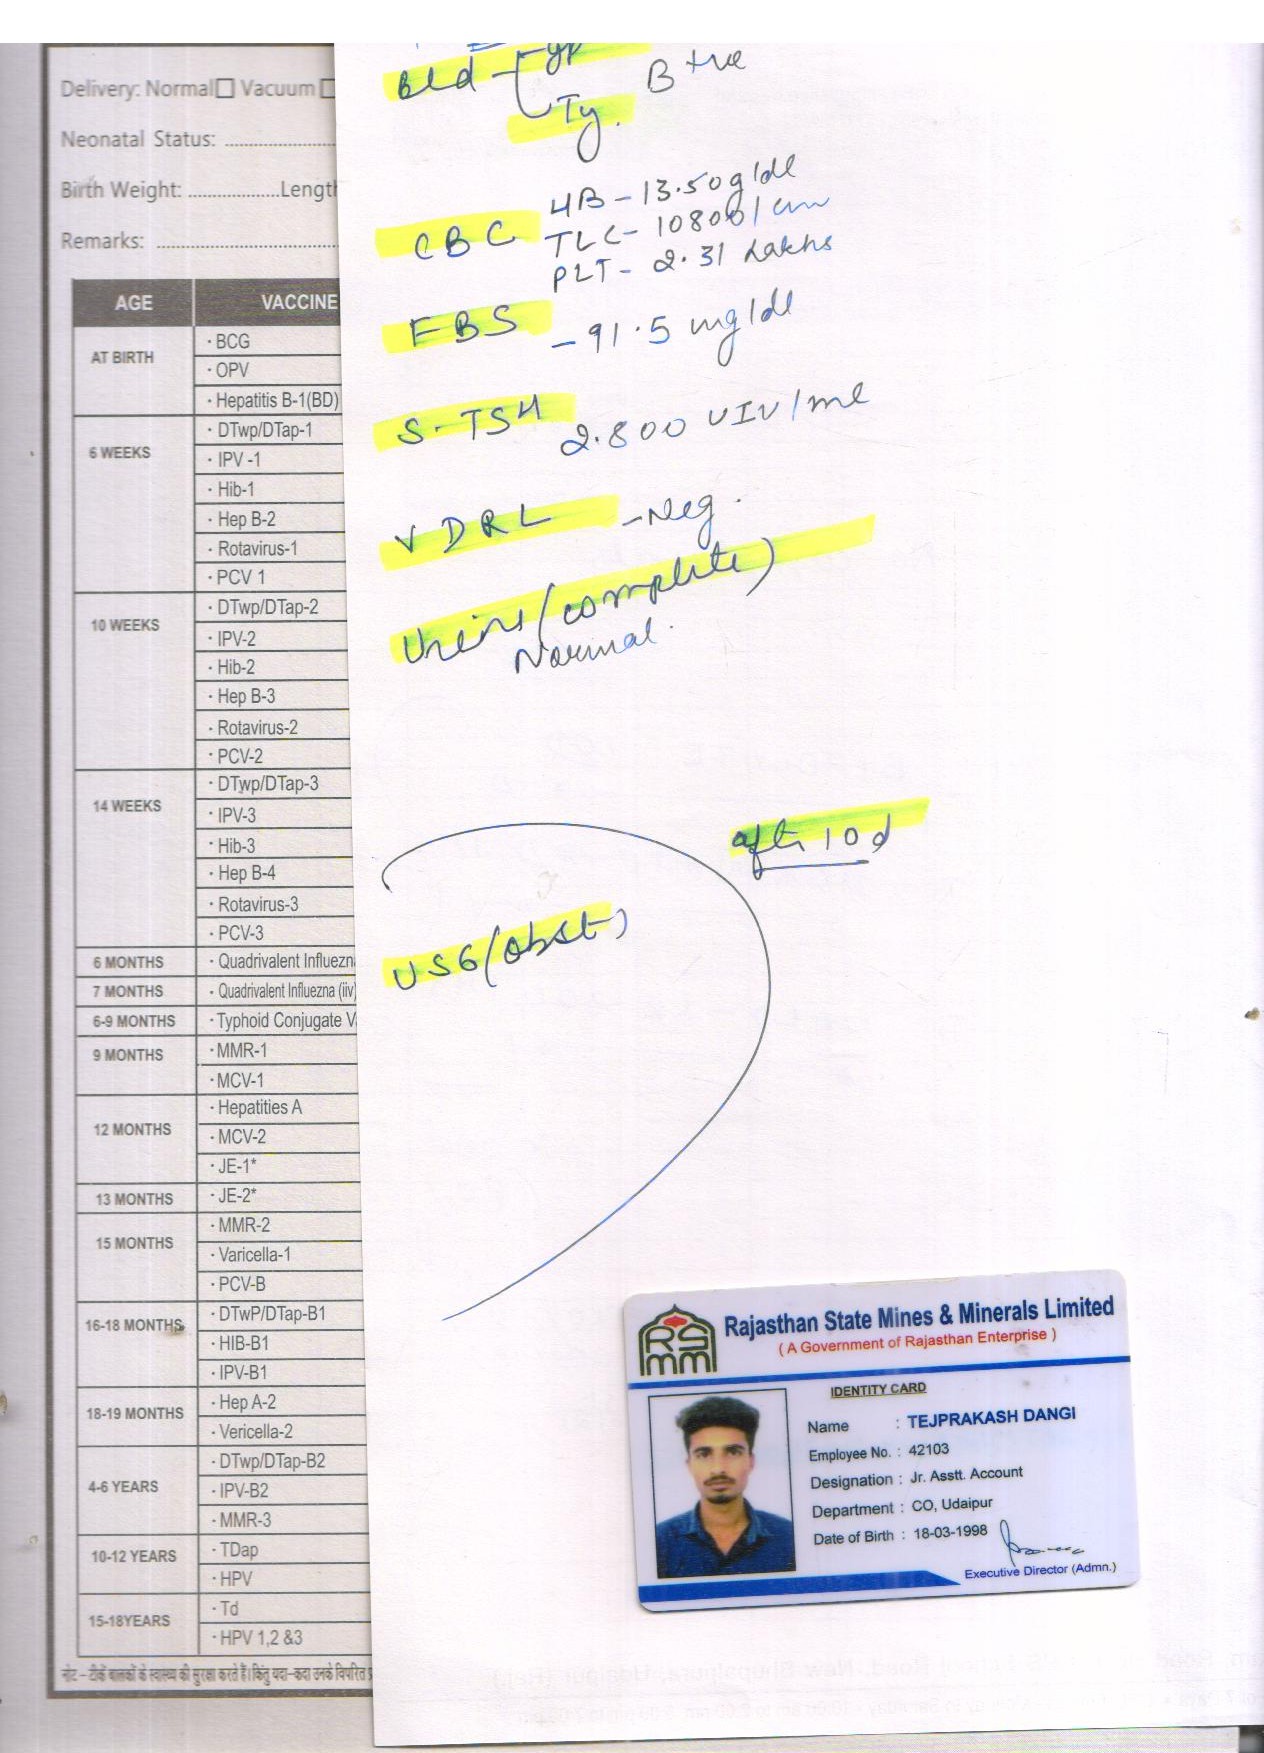 Delivery: Normal☐ Vacuum ☐
Neonatal Status: ....................
Birth Weight: ..................Lengt
Remarks: ....................
AGE VACCINE
AT BIRTH
· BCG
· OPV
· Hepatitis B-1(BD)
6 WEEKS
· DTwp/DTap-1
· IPV -1
· Hib-1
· Hep B-2
· Rotavirus-1
· PCV 1
10 WEEKS
· DTwp/DTap-2
· IPV-2
· Hib-2
· Hep B-3
· Rotavirus-2
· PCV-2
14 WEEKS
· DTwp/DTap-3
· IPV-3
· Hib-3
· Hep B-4
· Rotavirus-3
· PCV-3
6 MONTHS · Quadrivalent Influezn
7 MONTHS · Quadrivalent Influezna (iiv)
6-9 MONTHS · Typhoid Conjugate V
9 MONTHS
· MMR-1
· MCV-1
12 MONTHS
· Hepatities A
· MCV-2
· JE-1*
13 MONTHS · JE-2*
15 MONTHS
· MMR-2
· Varicella-1
· PCV-B
16-18 MONTHS
· DTwP/DTap-B1
· HIB-B1
· IPV-B1
18-19 MONTHS
· Hep A-2
· Vericella-2
4-6 YEARS
· DTwp/DTap-B2
· IPV-B2
· MMR-3
10-12 YEARS
· TDap
· HPV
15-18YEARS
· Td
· HPV 1,2 &3
नोट – टीकें बालकों के स्वास्थ्य की सुरक्षा करते हैं। किंतु यदा-कदा उनके विपरित
Bld gp B +ve
Ty.
CBC HB - 13.50 g/dl
TLC - 10800/cm
PLT - 2.31 Lakhs
FBS - 91.5 mg/dl
S-TSH 2.800 UIU/ml
VDRL - Neg.
Urine/(complete)
Normal.
after 10 d
USG/(obst)
RS
mm
Rajasthan State Mines & Minerals Limited
( A Government of Rajasthan Enterprise )
IDENTITY CARD
Name : TEJPRAKASH DANGI
Employee No. : 42103
Designation : Jr. Asstt. Account
Department : CO, Udaipur
Date of Birth : 18-03-1998
Executive Director (Admn.)